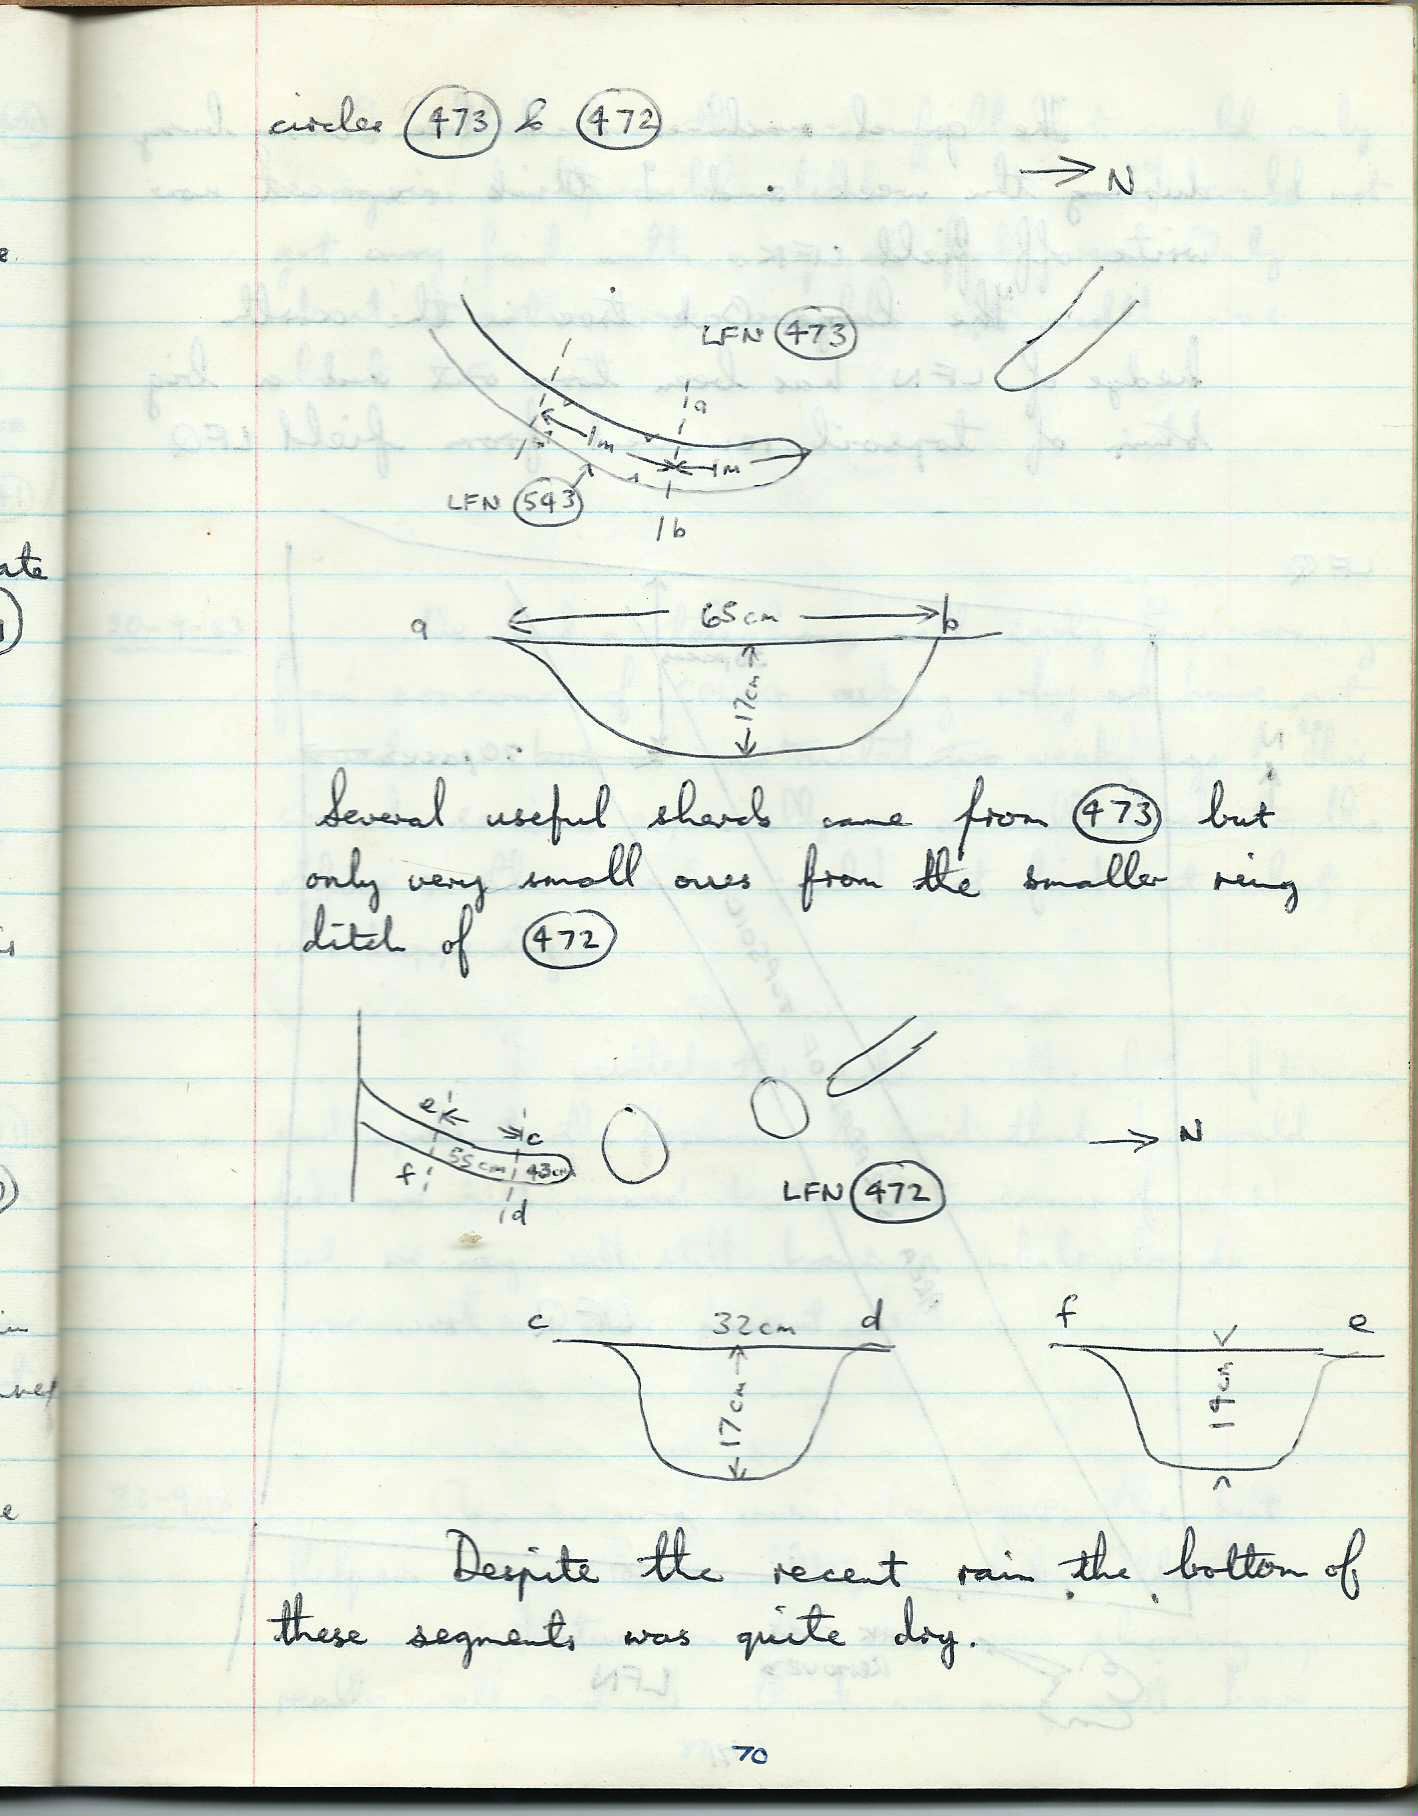 circles 473 & 472
N
LFN 473
a
1m
1m
LFN 543
b
a 65cm b
17cm
Several useful sherds came from 473 but
only very small ones from the smaller ring
ditch of 472
e
c
55cm 43cm
f
d
N
LFN 472
c 32cm d
17cm
f e
Despite the recent rain the bottom of
these segments was quite dry.
70